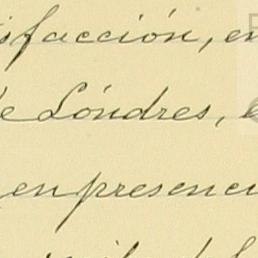 sfacción, en
de Lóndres, e
en presenci